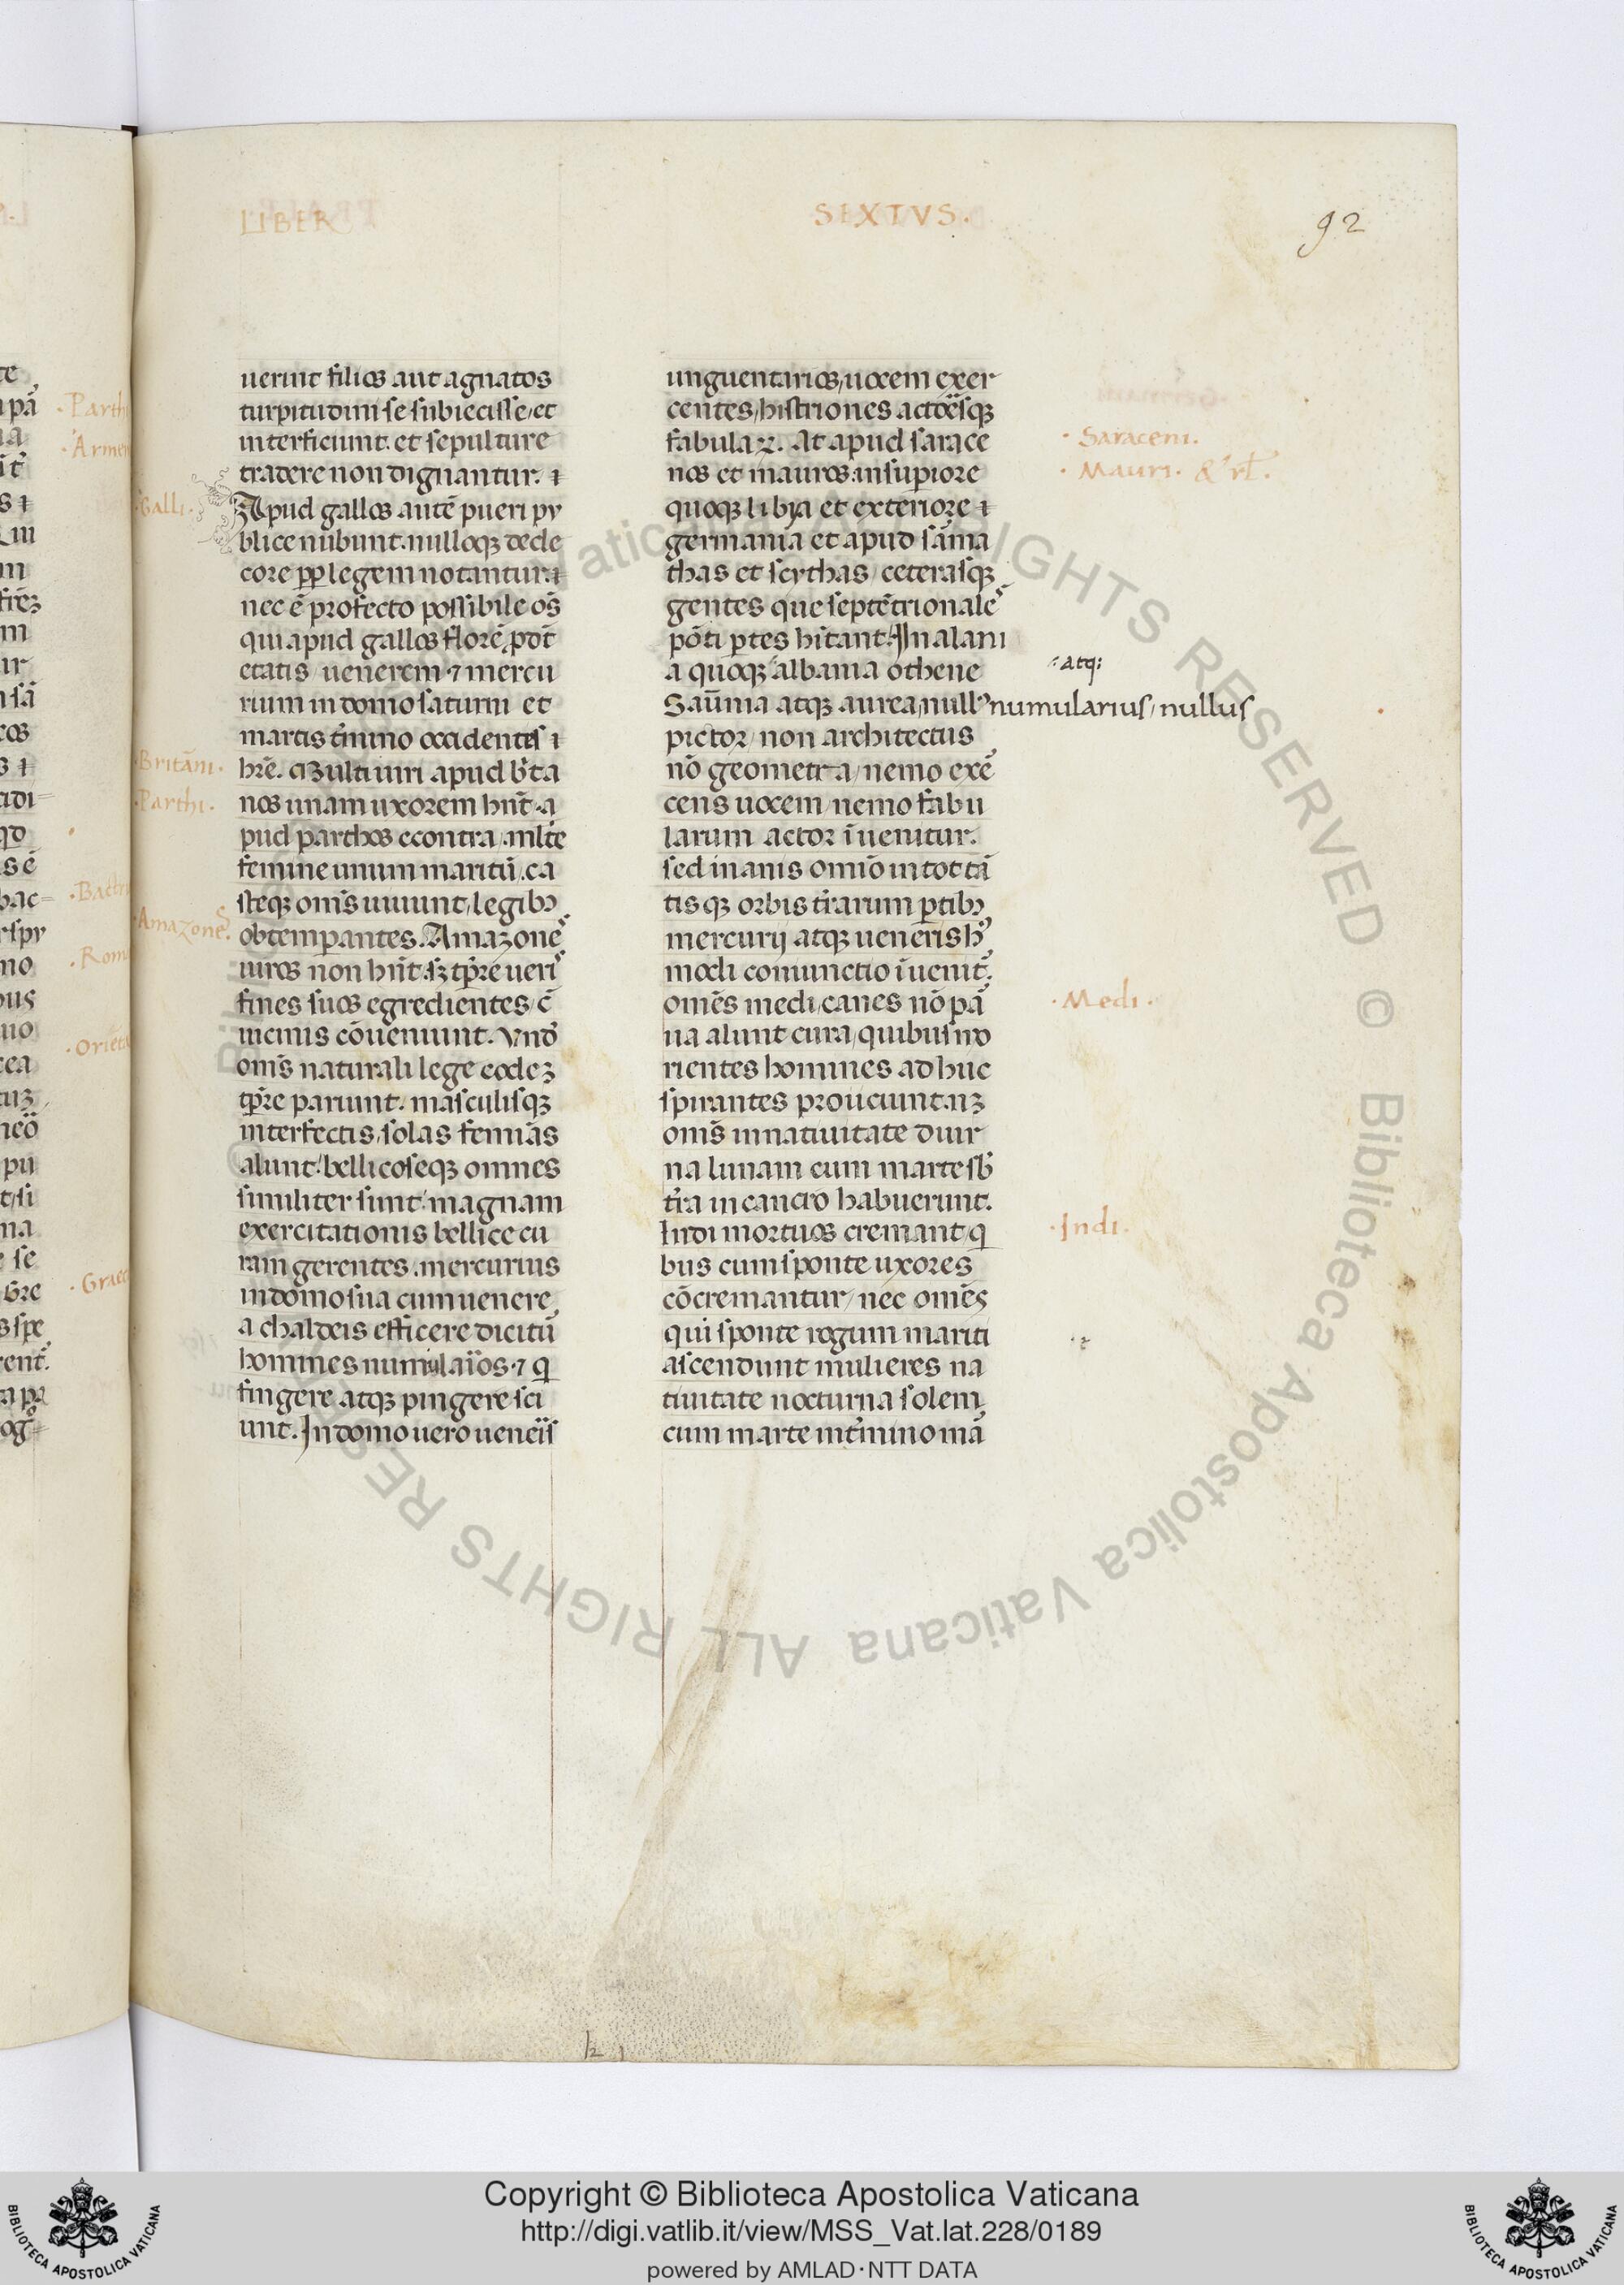 LIBER
SEXTVS.
92
uerint filios aut agnatos
turpitudini se subiecisse, et
interficiunt. et sepulture
tradere non dignantur. ⁊
Galli.
Apud gallos autē pueri pv
blice nubunt. nulloqꝫ dede
core ꝓp legem notantur. ⁊
nec ē profecto possibile oēs
qui apud gallos florē, pot̄
etatis uenerem ⁊ mercu
rium in domo saturni et
martis t̓mino occidentes ⁊
Britāni.
hr̄e. Multi uiri apud b̓ta
Parthi.
nos unam uxorem hn̄t. a
pud parthos econtra, mlt̄e
femine unum maritū. ca
steqꝫ om̄s uiuunt, legibꝫ
Amazones.
obtemperantes. Amazones
uiros non hn̄t. sꝫ tp̄re ueris
fines suos egredientes, c̄
uicinis cōueniunt. Vnd̓
om̄s naturali lege eodeꝫ
tp̄re pariunt. masculisqꝫ
interfectis, solas feminas
alunt. bellicoseqꝫ omnes
similiter sunt. magnam
exercitationis bellice cu
ram gerentes. mercurius
in domo sua cum uenere,
a chaldeis efficere dicitur
homines numularios. ⁊ q
fingere atqꝫ pingere sci
unt. In domo uero ueneris
unguentarios, uocem exer
centes, histriones actoresqꝫ
fabulaꝝ. At apud sarace
nos et mauros. in superiore
quoqꝫ libya et exteriore ⁊
germania et apud sarma
thas et scythas, ceterasqꝫ
gentes que septētrionales
pōti ptes hītant. In alani
a quoqꝫ albania othene
Saūnia atqꝫ aurea, nullꝰ numularius, nullus
pictor, non architectus
nō geometra, nemo exer̄
cens uocem, nemo fabu
larum actor īuenitur.
sed inanis omīo in tot tā
tisqꝫ orbis t̓rarum ptibꝫ
mercurij atqꝫ ueneris hꝰ
modi coniunctio īuenit̄.
omēs medi, canes nō par
ua alunt cura, quibus mo
rientes homines adhuc
spirantes proiiciunt. nꝫ
om̄s in natiuitate diur
na lunam cum marte sb̓
t̓ra in cancro habuerunt.
Indi mortuos cremant, q
bus cum sponte uxores
cōcremantur, nec omēs
qui sponte rogum mariti
ascendunt mulieres na
tiuitate nocturna solem
cum marte in t̓mino mar
·Saraceni.
·Mauri. & rl̄.
:atq;
·Medi.
·Indi.
Copyright © Biblioteca Apostolica Vaticana
http://digi.vatlib.it/view/MSS_Vat.lat.228/0189
powered by AMLAD·NTT DATA
BIBLIOTECA APOSTOLICA VATICANA
BIBLIOTECA APOSTOLICA VATICANA